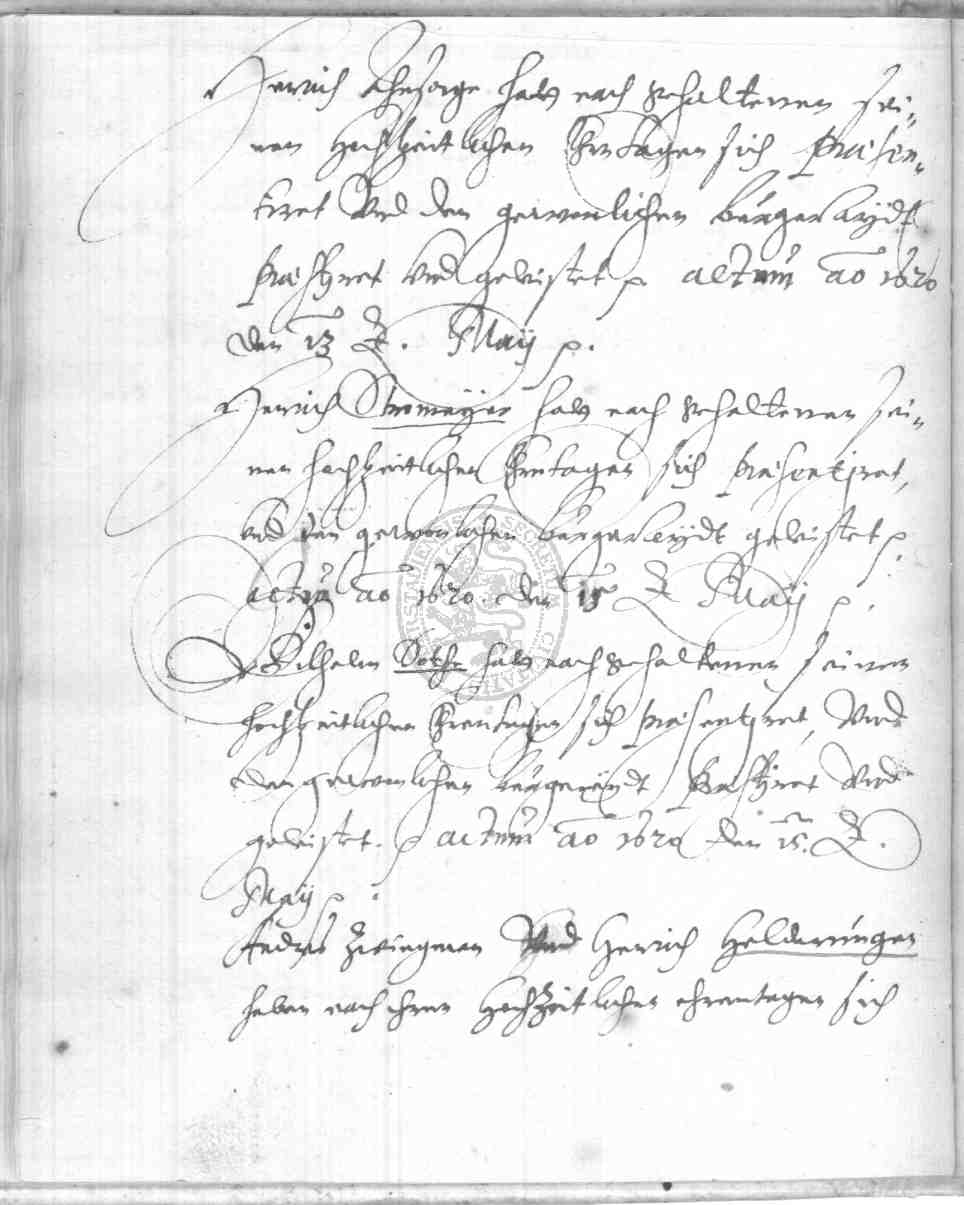 Henrich Ohesorge hatt nach gehaltenen sei„
nen Hochzeitlichen Ehrntagen sich præsen„
tiret Vnd den gewonlichen bürger Eydt
præstiret Vnd geleistet p actum ao 1620
den 13 May p.
Henrich Stromeyer hatt nach gehaltenen sei„
nen hochzeitlichen Ehrntagen sich præsentiret,
vnd den gewonlichen bürger Eydt geleistet p
actum ao 1620. den 15 May p.
Wilhelm Bothe hatt nach gehaltenen seinen
hochzeitlichen Ehrentagen sich præsentiret, Vnd
den gewonlichen bürgereydt præstiret Vnd
geleistet. p actum ao 1620 den 15.
May p.
Andreas Zwiegman Vnd Henrich Helderungen
haben nach ihren Hochzeitlichen ehrentagen sich